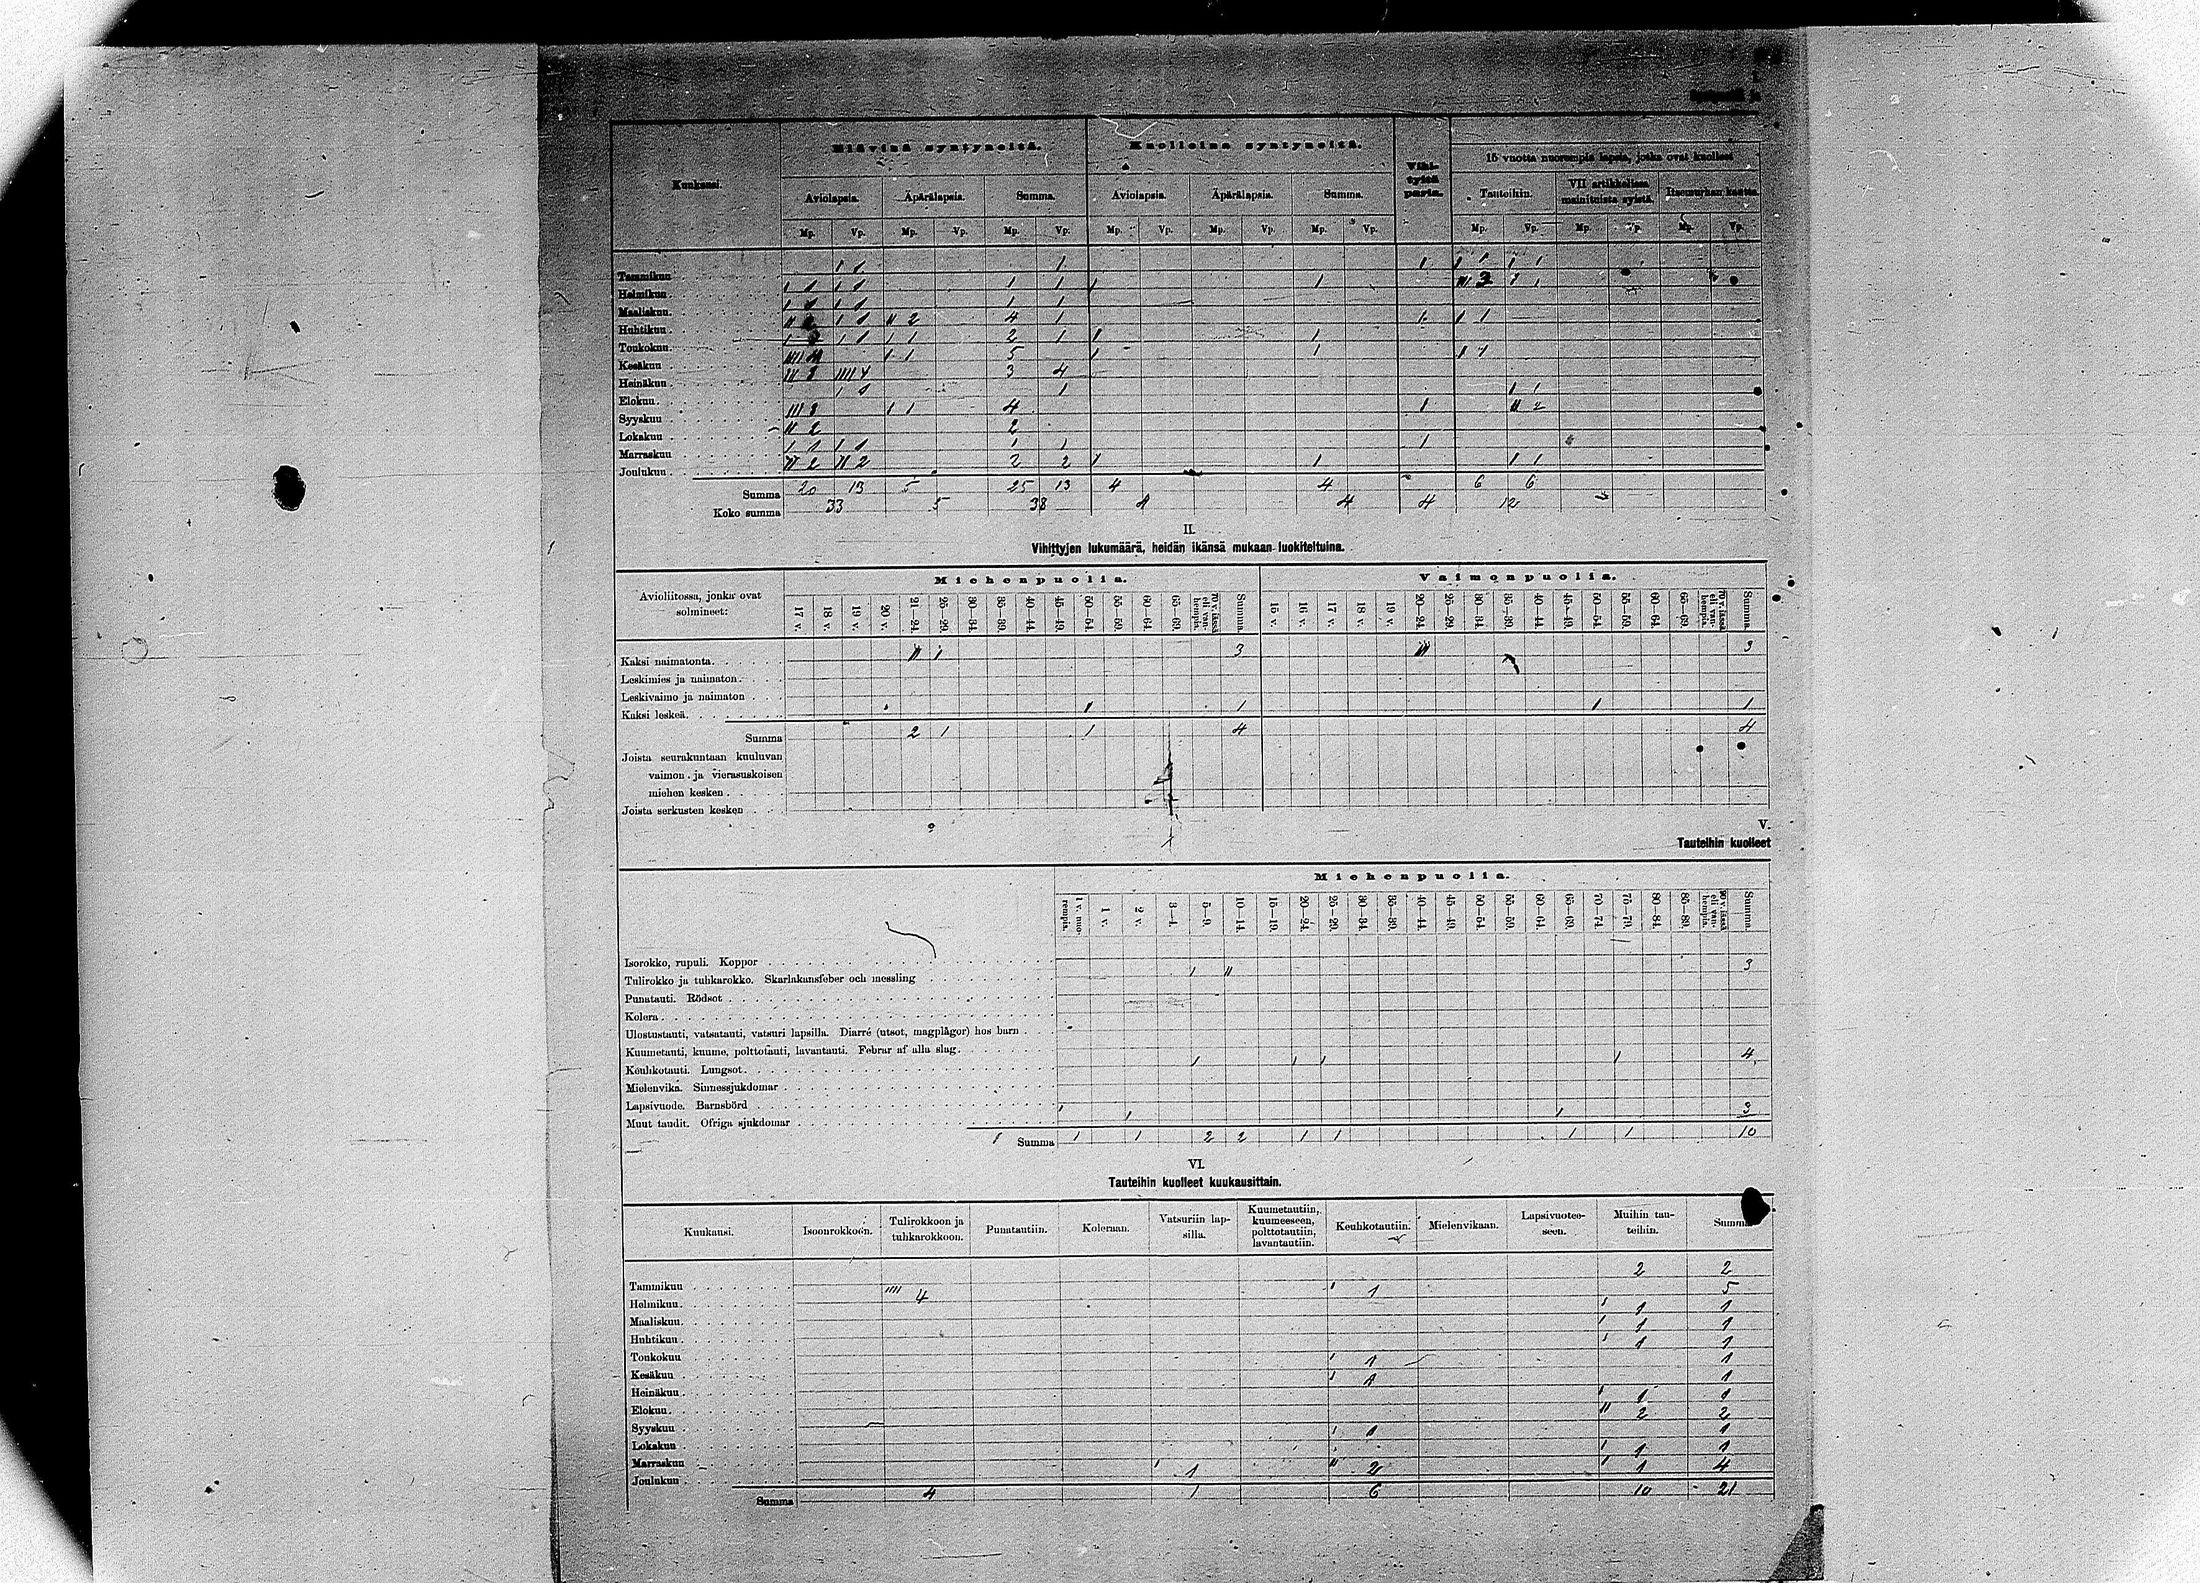 I.
Elävinä syntyneitä. Kuolleina syntyneitä.
15 vuotta nuorempia lapsia, jotka ovat kuolleet
Kuukausi. Vihityitä paria.
Aviolapsia. Äpärälapsia. Summa. Aviolapsia. Äpärälapsia. Summa. Tauteihin. VII artikkelissa mainituista syistä. Itsemurhan kautta.
Mp. Vp. Mp. Vp. Mp. Vp. Mp. Vp. Mp. Vp. Mp. Vp. Mp. Vp. Mp. Vp. Mp. Vp.
Tammikuu 1 1 1 1 1
Helmikuu 1 1 1 1 1 3 1
Maaliskuu 1 1 1 1
Huhtikuu 1 2 4 1 1 1
Toukokuu 1 1 2 1 1 1
Kesäkuu 1 5 1 1
Heinäkuu 3 4 3 4
Elokuu 1 1 1
Syyskuu 3 1 4 1 2
Lokakuu 2 2
Marraskuu 1 1 1 1 1
Joulukuu 2 2 2 2 1 1
Summa 20 13 5 25 13 4 4 6 6
Koko summa 33 5 38 4 4 4 12
II.
Vihittyjen lukumäärä, heidän ikänsä mukaan luokiteltuina.
Miehenpuolia. Vaimonpuolia.
Avioliitossa, jonka ovat solmineet:
17 v. 18 v. 19 v. 20 v. 21—24. 25—29. 30—34. 35—39. 40—44. 45—49. 50—54. 55—59. 60—64. 65—69. 70 v. iässä eli vanhempia. Summa. 15 v. 16 v. 17 v. 18 v. 19 v. 20—24. 25—29. 30—34. 35—39. 40—44. 45—49. 50—54. 55—59. 60—64. 65—69. 70 v. iässä eli vanhempia. Summa.
Kaksi naimatonta II I 3 III 3
Leskimies ja naimaton
Leskivaimo ja naimaton
Kaksi leskeä 1 1 1 1
Summa 2 1 1 4 4
Joista seurakuntaan kuuluvan
vaimon ja vierasuskoisen
miehen kesken
Joista serkusten kesken
V.
Tauteihin kuolleet
Miehenpuolia.
1 v. nuorempia. 1 v. 2 v. 3—4. 5—9. 10—14. 15—19. 20—24. 25—29. 30—34. 35—39. 40—44. 45—49. 50—54. 55—59. 60—64. 65—69. 70—74. 75—79. 80—84. 85—89. 90 v. iässä eli vanhempia. Summa.
Isorokko, rupuli. Koppor
Tulirokko ja tuhkarokko. Skarlakansfeber och messling I II 3
Punatauti. Rödsot
Kolera
Ulostustauti, vatsatauti, vatsuri lapsilla. Diarré (utsot, magplågor) hos barn
Kuumetauti, kuume, polttotauti, lavantauti. Febrar af alla slag
Keuhkotauti. Lungsot 1 1 1 1 4
Mielenvika. Sinnessjukdomar
Lapsivuode. Barnsbörd
Muut taudit. Öfriga sjukdomar 1 1 1 3
Summa 1 1 2 2 1 1 1 1 10
VI.
Tauteihin kuolleet kuukausittain.
Kuukausi. Isoonrokkoon. Tulirokkoon ja tuhkarokkoon. Punatautiin. Koleraan. Vatsuriin lapsilla. Kuumetautiin, kuumeeseen, polttotautiin, lavantautiin. Keuhkotautiin. Mielenvikaan. Lapsivuoteeseen. Muihin tauteihin. Summa
Tammikuu 2 2
Helmikuu IIII 4 1 5
Maaliskuu 1 1
Huhtikuu 1 1
Toukokuu 1 1
Kesäkuu 1 1
Heinäkuu 1 1
Elokuu 1 1
Syyskuu 2 2
Lokakuu 1 1
Marraskuu 1 1
Joulukuu 1 2 1 4
Summa 4 1 6 10 21